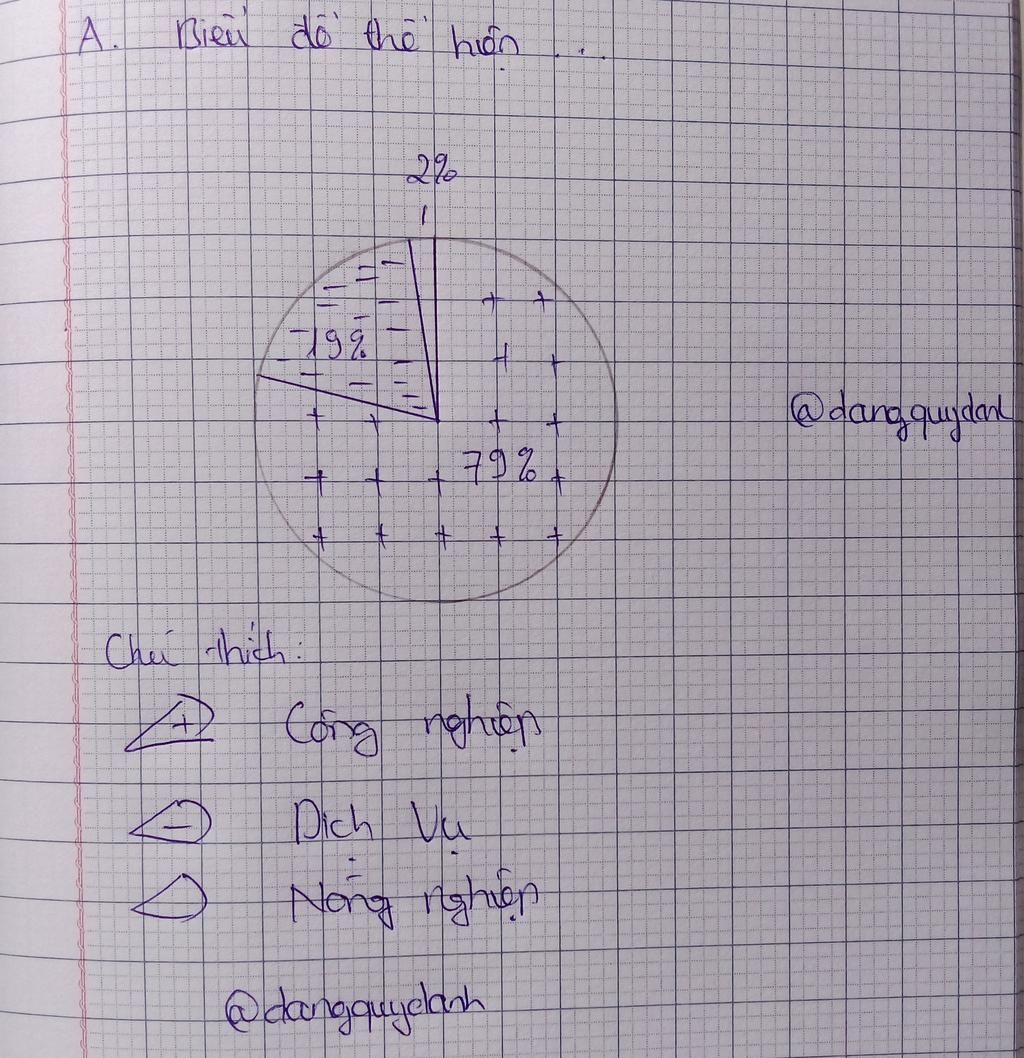 A. Biểu đồ thể hiện ...
2%
19%
79%
@dangquydanh
Chú thích:
+ Công nghiệp
- Dịch Vụ
Nông nghiệp
@dangquydanh